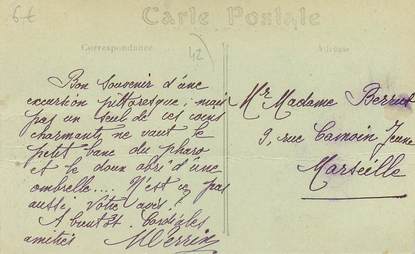 6€
Carte Postale
42
Correspondance
Adresse
Bon souvenir d'une
excursion pittoresque ; mais
pas un seul de ces coins
charmants ne vaut le
petit banc du pharo
et le doux abri d'une
ombrelle.... N'est ce pas
aussi votre avis ?
A bientôt. Cordiales
amitiés
Mr Madame
9, rue Camoin Jeune
Marseille